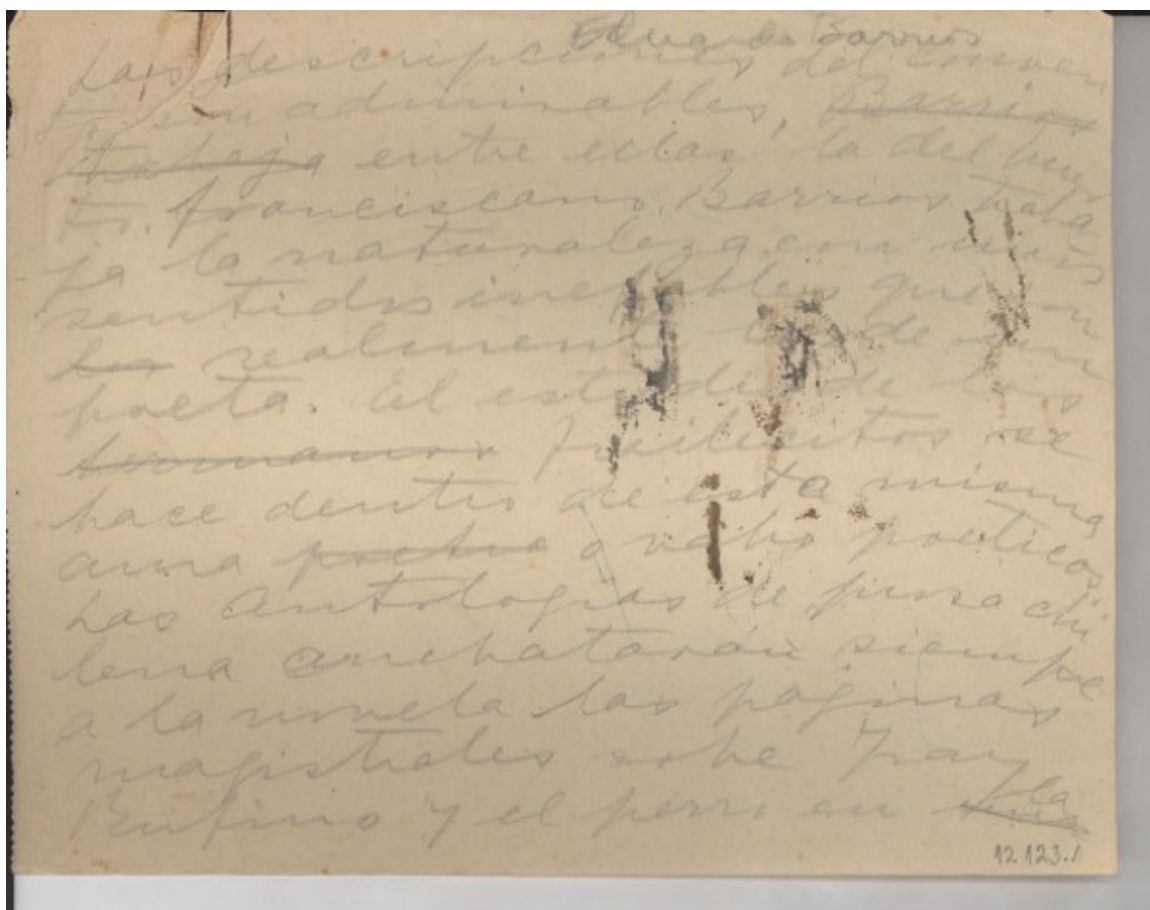 Eduardo Barrios
Las descripciones del conven
to son admirables, Barrios
trabaja entre ellas la del huer
to franciscano. Barrios traba
ja la naturaleza con unos
sentidos inefables que son
los realmente los de un
poeta. El estudio de los
hermanos frailecitos se
hace dentro de esta misma
aura poetica o vaho poeticos
Las Antologías de prosa chi
lena arrebatarán siempre
a la novela las páginas
magistrales sobre Fray
Rufino y el perro en una la
12.123.1